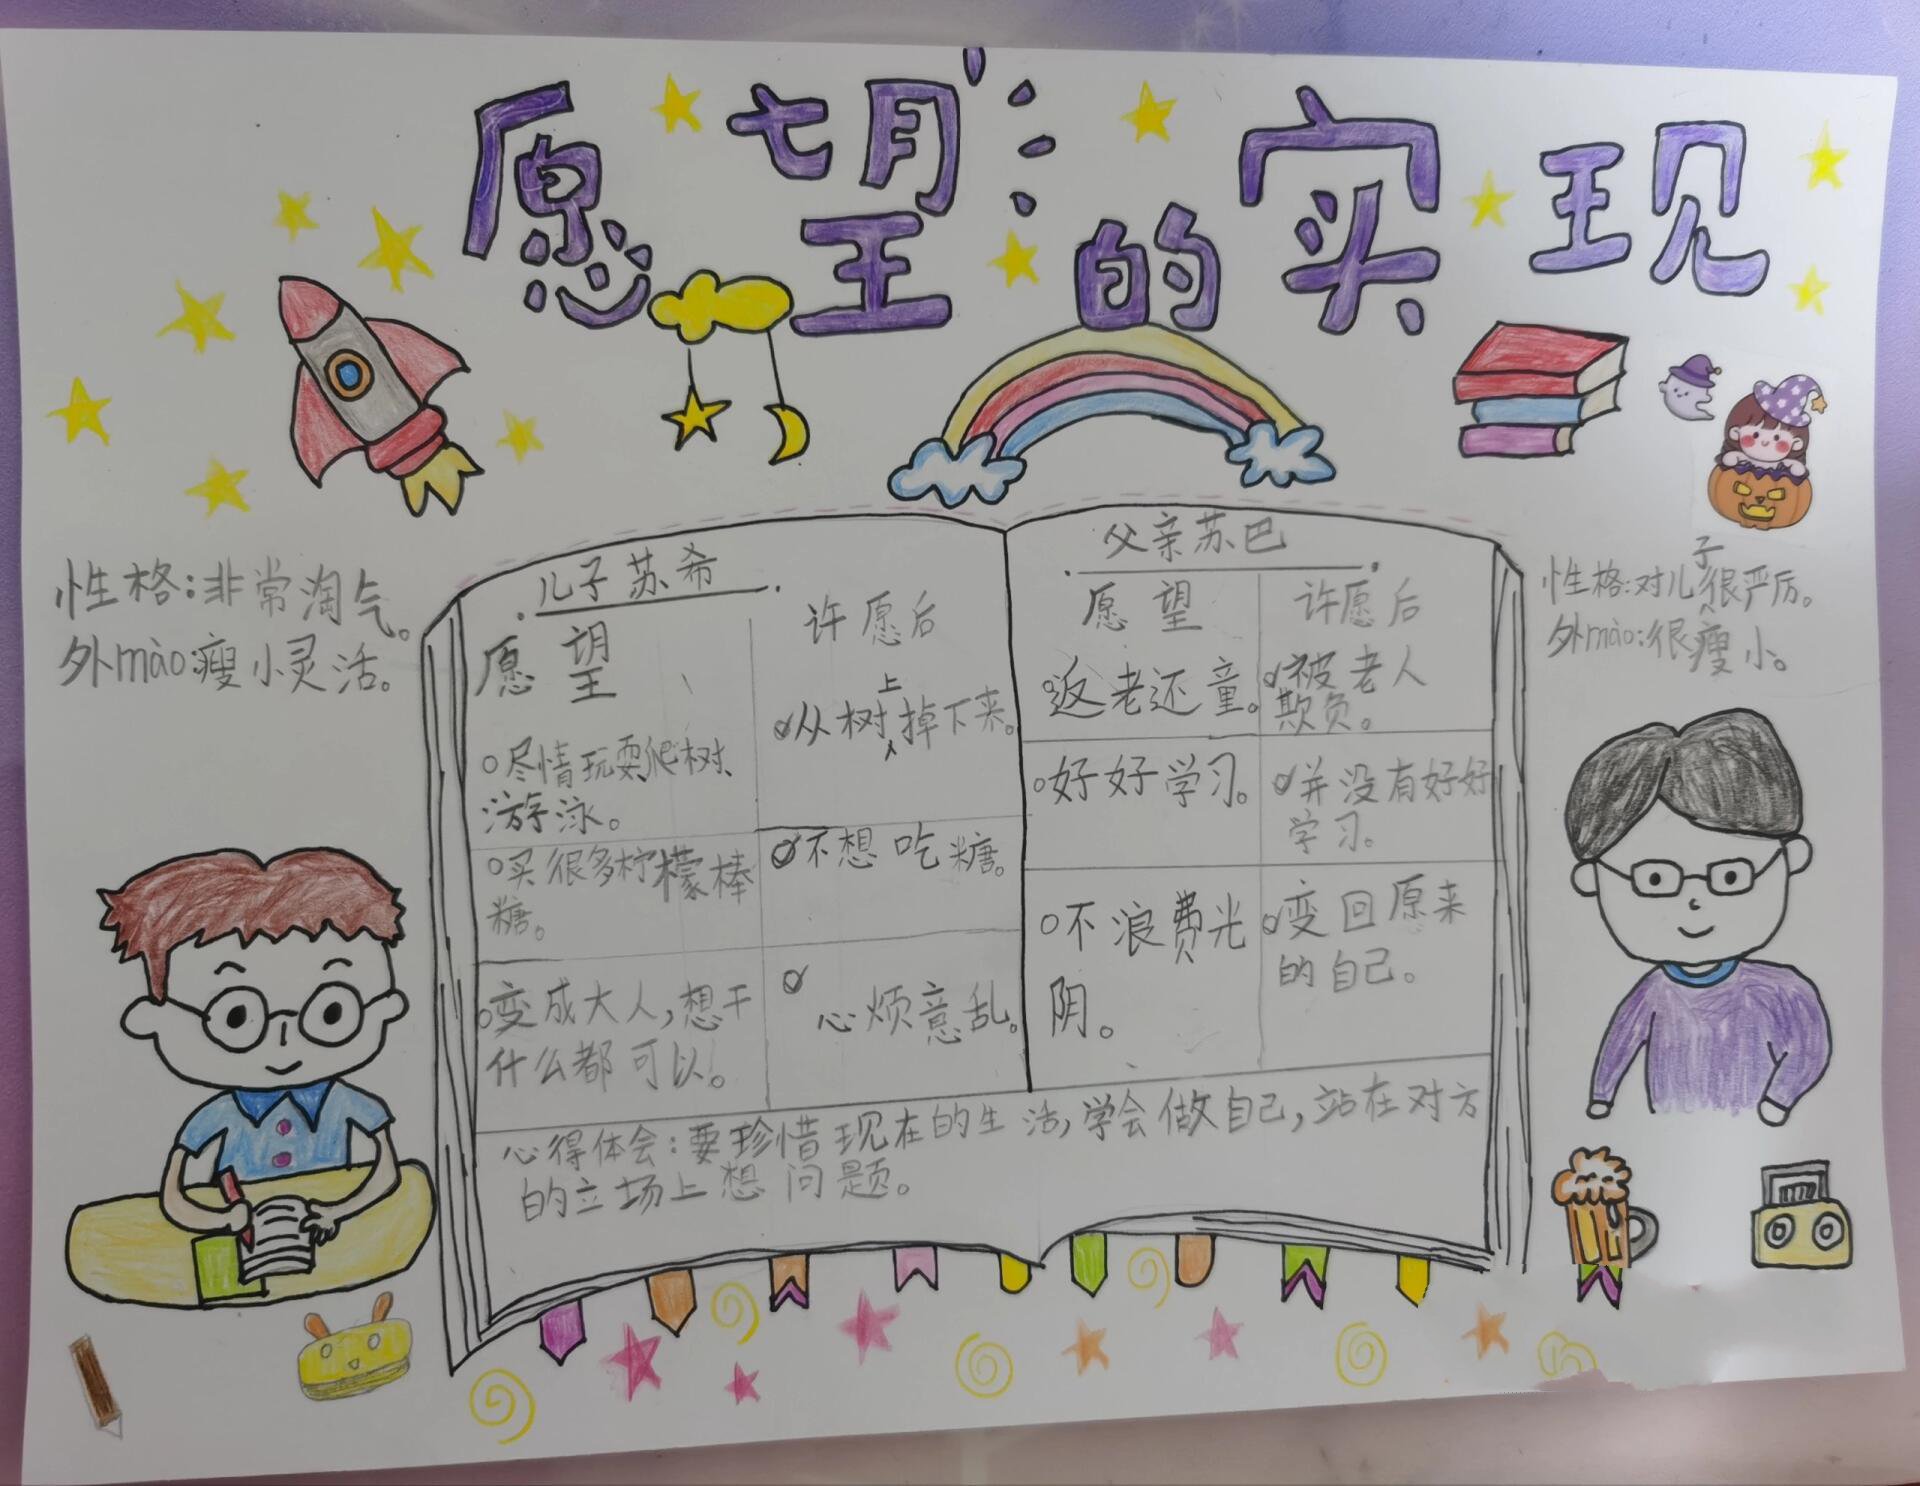 愿望的实现
性格:非常淘气。
外mào:瘦小灵活。
儿子苏希
愿望
许愿后
尽情玩耍爬树、
游泳。
从树上掉下来。
买很多柠檬棒
糖。
不想吃糖。
变成大人,想干
什么都可以。
心烦意乱。
父亲苏巴
愿望
许愿后
返老还童。
被老人
欺负。
好好学习。
并没有好好
学习。
不浪费光
阴。
变回原来
的自己。
心得体会:要珍惜现在的生活,学会做自己,站在对方
的立场上想问题。
性格:对儿子很严厉。
外mào:很瘦小。